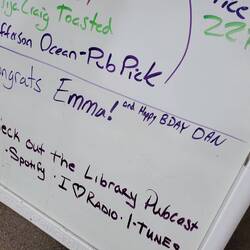 Craig Toasted
fferson Ocean-Pub Pick
ongrats Emma! and Happy BDAY DAN
eck out the Library Pubcast
·Spotify·I ♡ RADIO·I-TUNES
22